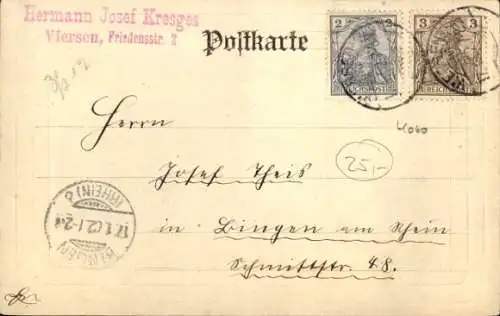 Hermann Josef Kresges
Viersen, Friedensstr. 2
Postkarte
2
2
3
3
REICHSPOST
Herrn
Josef Theis
in Bingen am Rhein
Schmittstr. 48.
25,-
BINGEN
(RHEIN) 2
17.1.02.1-2